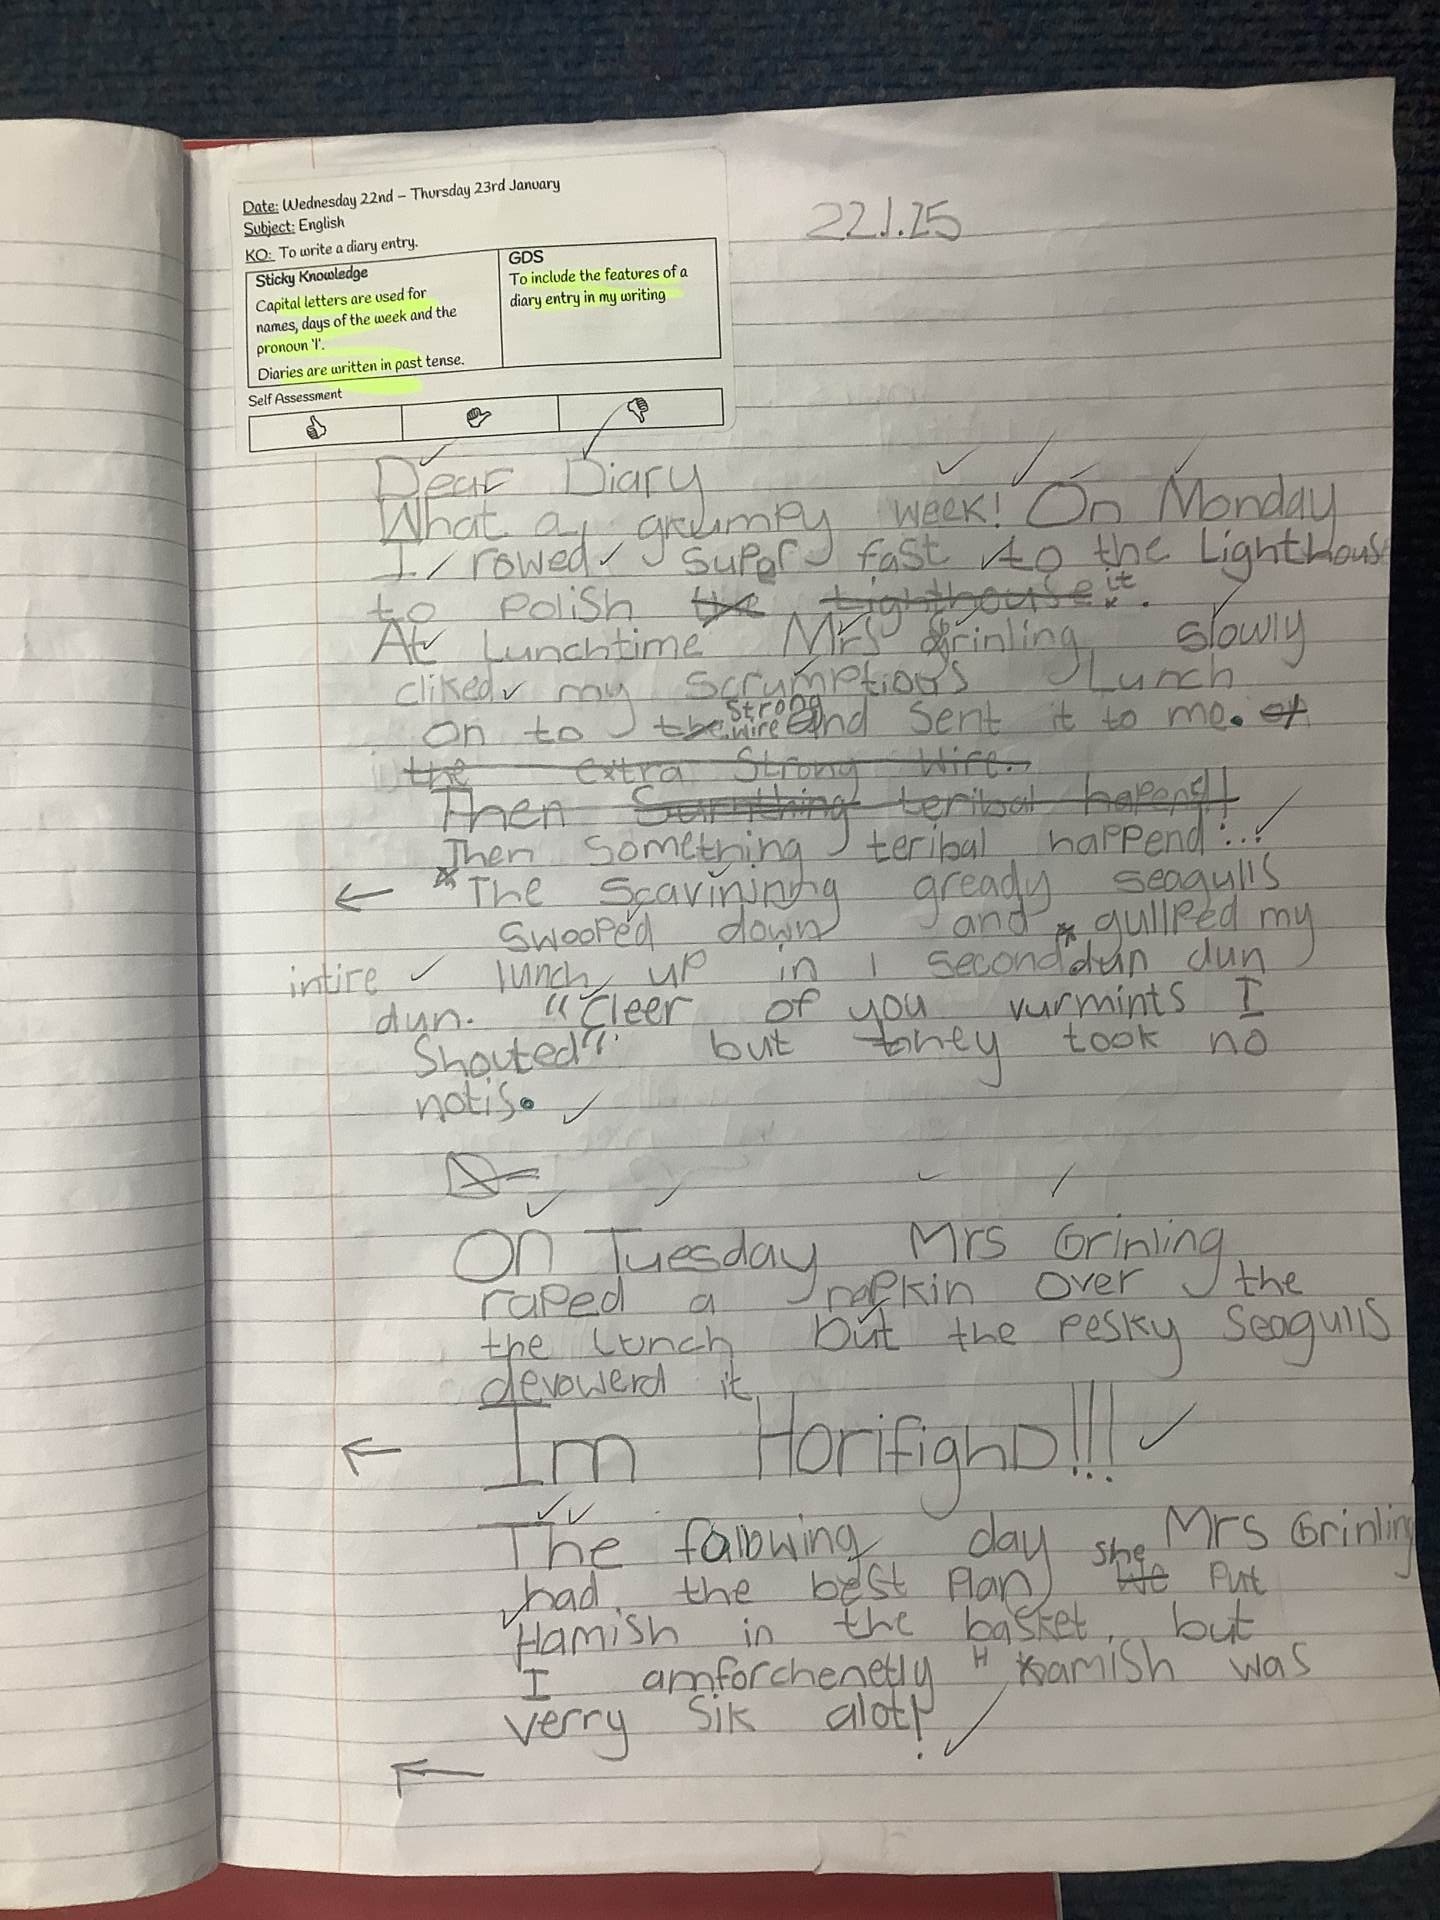 Date: Wednesday 22nd – Thursday 23rd January
Subject: English
KO: To write a diary entry.
Sticky Knowledge
Capital letters are used for
names, days of the week and the
pronoun 'I'.
Diaries are written in past tense.
GDS
To include the features of a
diary entry in my writing
Self Assessment
22.1.25
Dear Diary
What a grumpy week! On Monday
I rowed super fast to the Lighthouse
to polish the Lighthouse it.
At Lunchtime Mrs Grinling slowly
cliked my scrumptious Lunch
on to the strong wire and sent it to me.
the extra strong wire.
Then Sumthing teribal hapend!
Then something teribal happend...
The scavining gready seagulls
swooped down and gullped my
intire lunch up in 1 second dun dun
dun. "Cleer of you vurmints I
Shouted". but they took no
notis.
On Tuesday Mrs Grinling
raped a napkin over the
the lunch but the pesky seagulls
devowerd it
Im HorifighD!!!
The following day Mrs Grinling
had the best plan she He put
Hamish in the basket, but
I amforchenetly Hamish was
verry sik alot!